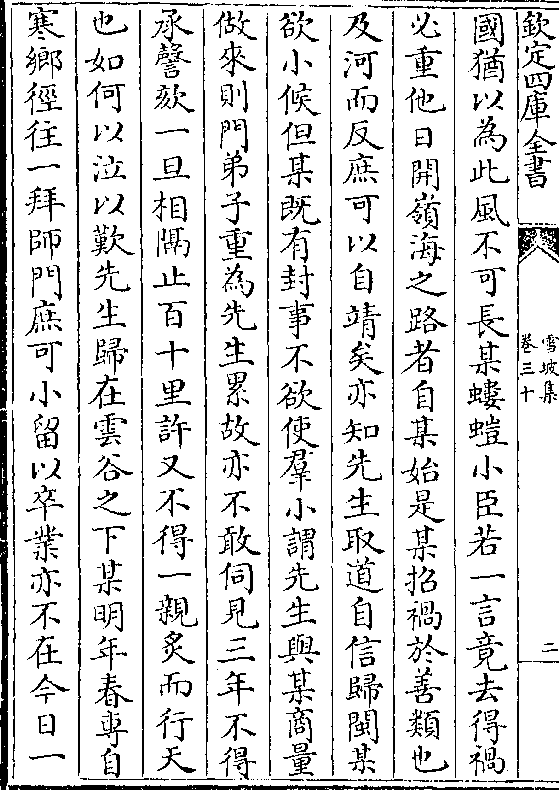 欽定四庫全書
雪坡集
卷三十
二
國猶以為此風不可長某螻螘小臣若一言竟去得禍
必重他日開嶺海之路者自某始是某招禍於善類也
及河而反庶可以自靖矣亦知先生取道自信歸閩某
欲小候但某既有封事不欲使羣小謂先生與某商量
做來則門弟子重為先生累故亦不敢伺見三年不得
承謦欬一旦相隔止百十里許又不得一親炙而行天
也如何以泣以歎先生歸在雲谷之下某明年春專自
寒鄉徑往一拜師門庶可小留以卒業亦不在今日一